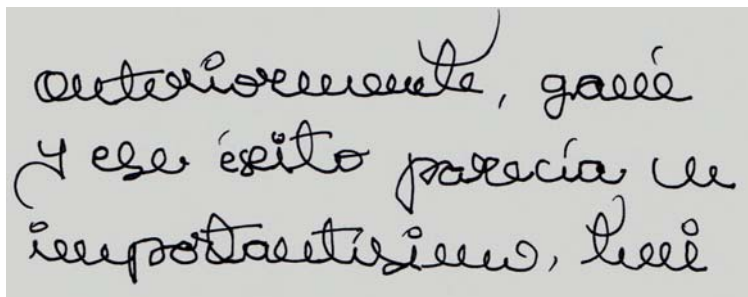 anteriormente, gané
y ese éxito parecía un
importantísimo,